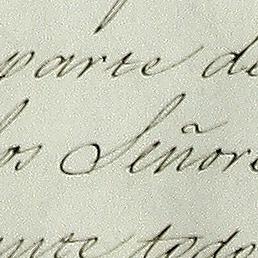 parte de
los Señore
ante todo